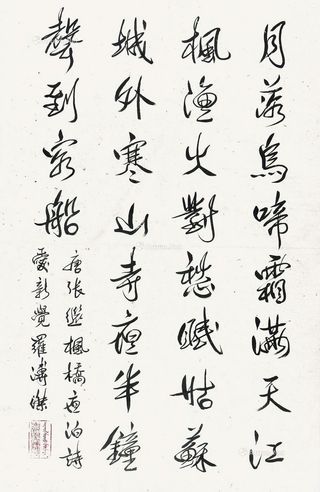 月落烏啼霜滿天江
楓漁火對愁眠姑蘇
城外寒山寺夜半鐘
聲到客船
唐張繼楓橋夜泊詩
愛新覺羅溥傑